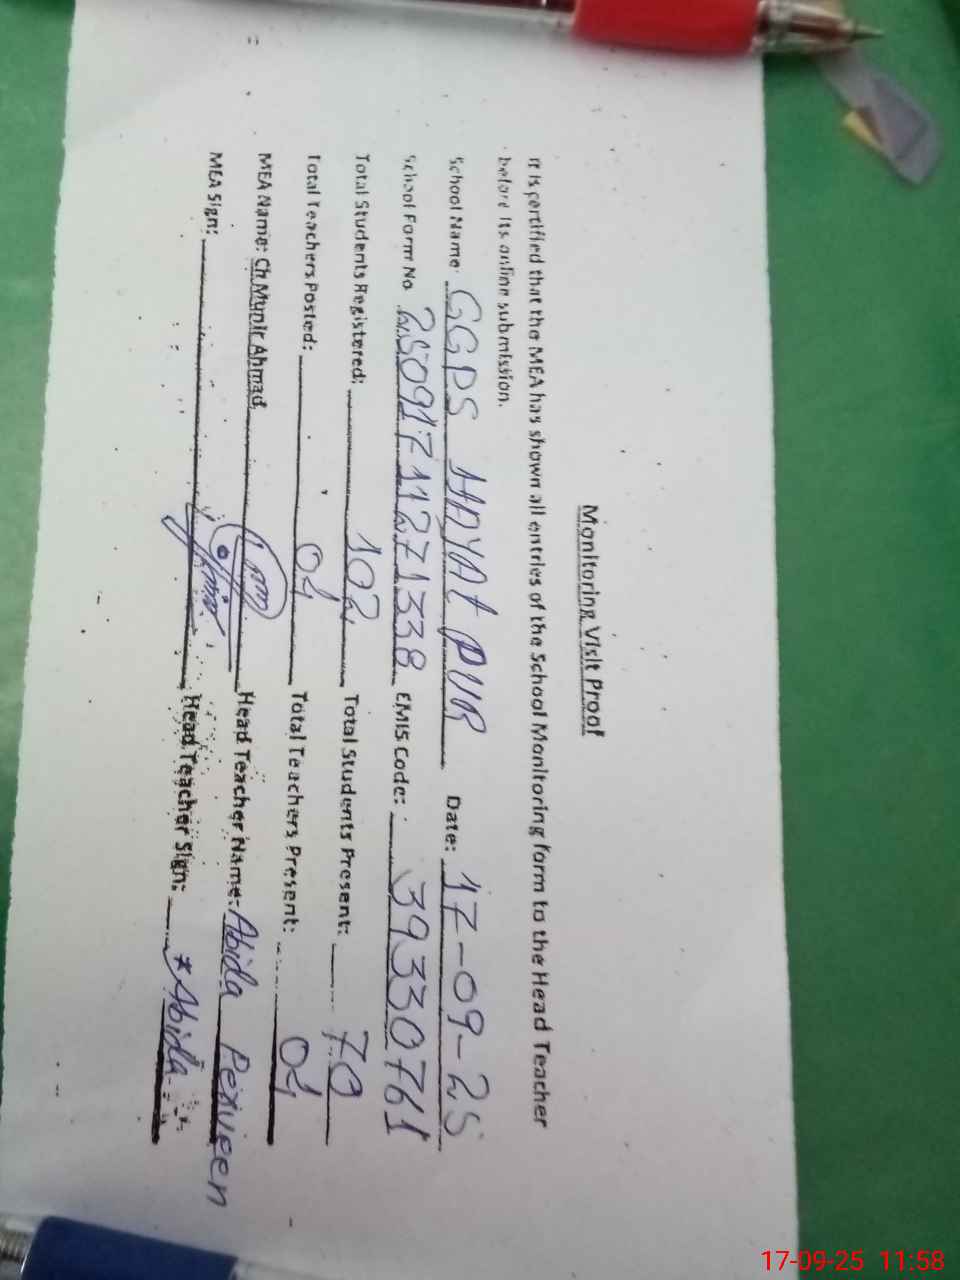 Monitoring Visit Proof
It is certified that the MEA has shown all entries of the School Monitoring form to the Head Teacher
before its online submission.
School Name: GGPS HAYAT PUR Date: 17-09-25
School Form No. 25091711271338 EMIS Code: 39330761
Total Students Registered: 102 Total Students Present: 70
Total Teachers Posted: 04 Total Teachers Present: 04
MEA Name: Ch Munir Ahmad Head Teacher Name: Abida Perveen
MEA Sign: Head Teacher Sign: Abida
17-09-25 11:58